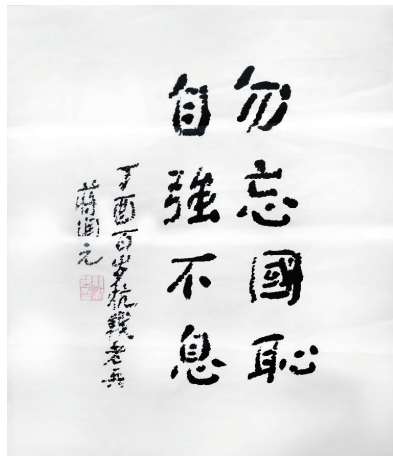 勿忘國恥
自強不息
丁酉百岁抗戰老兵
蔣潤元